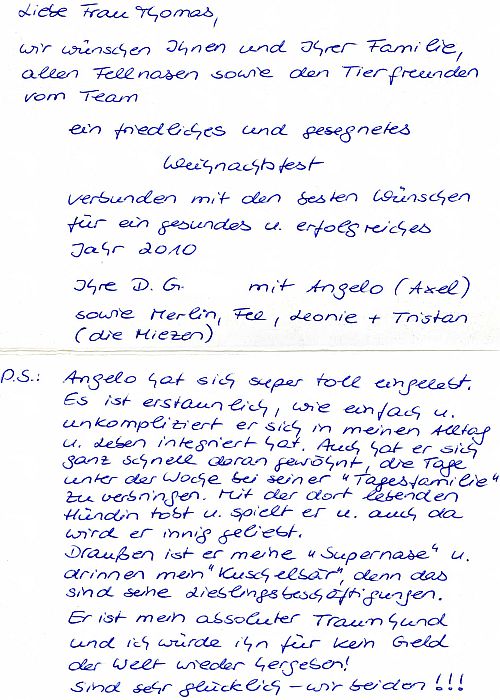 Liebe Frau Thomas,
wir wünschen Ihnen und Ihrer Familie,
allen Fellnasen sowie den Tierfreunden
vom Team
ein friedliches und gesegnetes
Weihnachtsfest
verbunden mit den besten Wünschen
für ein gesundes u. erfolgreiches
Jahr 2010
Ihre D. G. mit Angelo (Axel)
sowie Merlin, Fee, Leonie + Tristan
(die Miezen)
P.S.: Angelo hat sich super toll eingelebt.
Es ist erstaunlich, wie einfach u.
unkompliziert er sich in meinen Alltag
u. Leben integriert hat. Auch hat er sich
ganz schnell daran gewöhnt, die Tage
unter der Woche bei seiner "Tagesfamilie"
zu verbringen. Mit der dort lebenden
Hündin tobt u. spielt er u. auch da
wird er innig geliebt.
Draußen ist er meine "Supernase" u.
drinnen mein "Kuschelbär", denn das
sind seine Lieblingsbeschäftigungen.
Er ist mein absoluter Traumhund
und ich würde ihn für kein Geld
der Welt wieder hergeben!
Sind sehr glücklich - wir beiden!!!